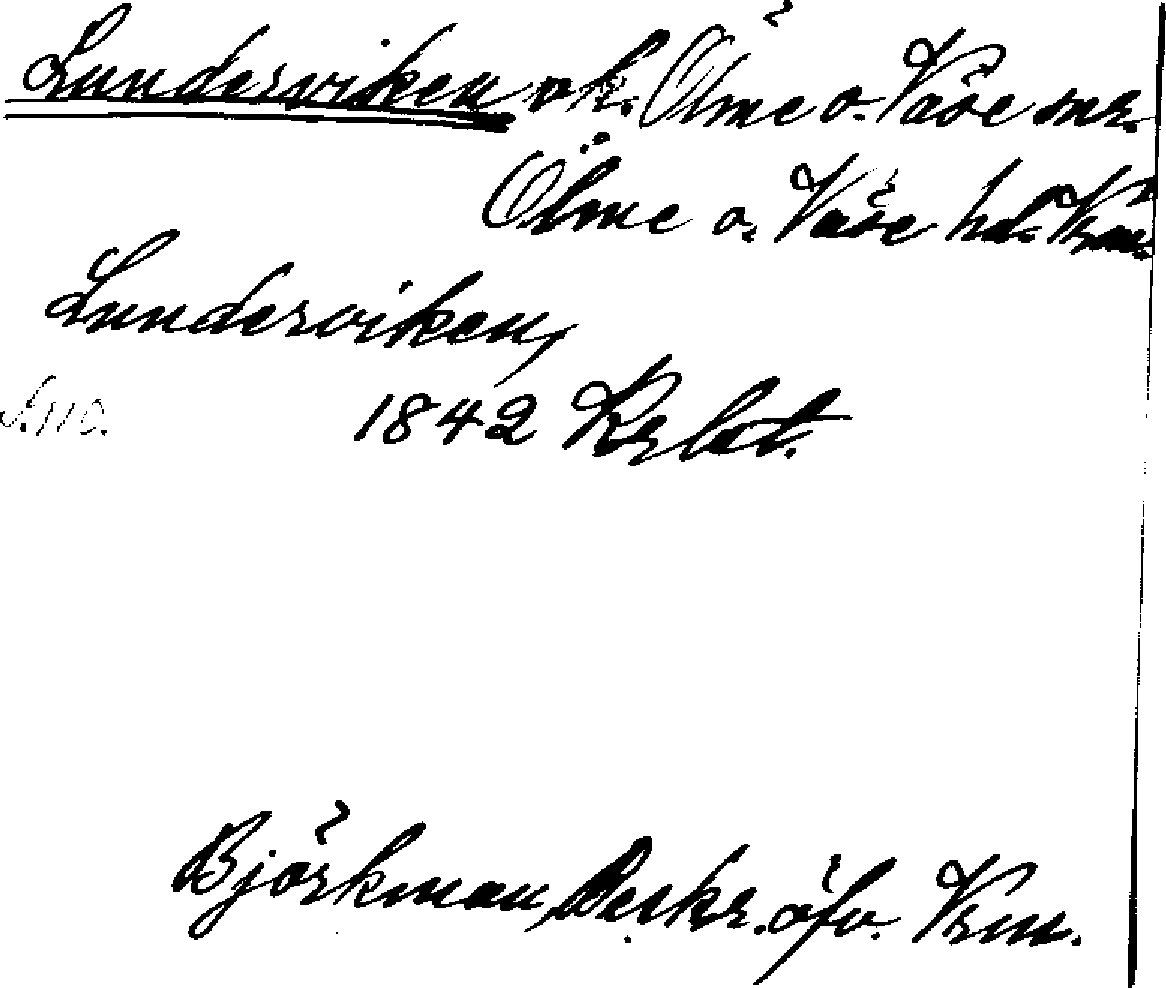 Lundersviken vk. Ölme o. Väse snr.
Ölme o. Väse hd. Vrm.
Lunderviken,
S. 110.
1842 Krlbt.
Björkman, Beskr. öfv. Vrm.